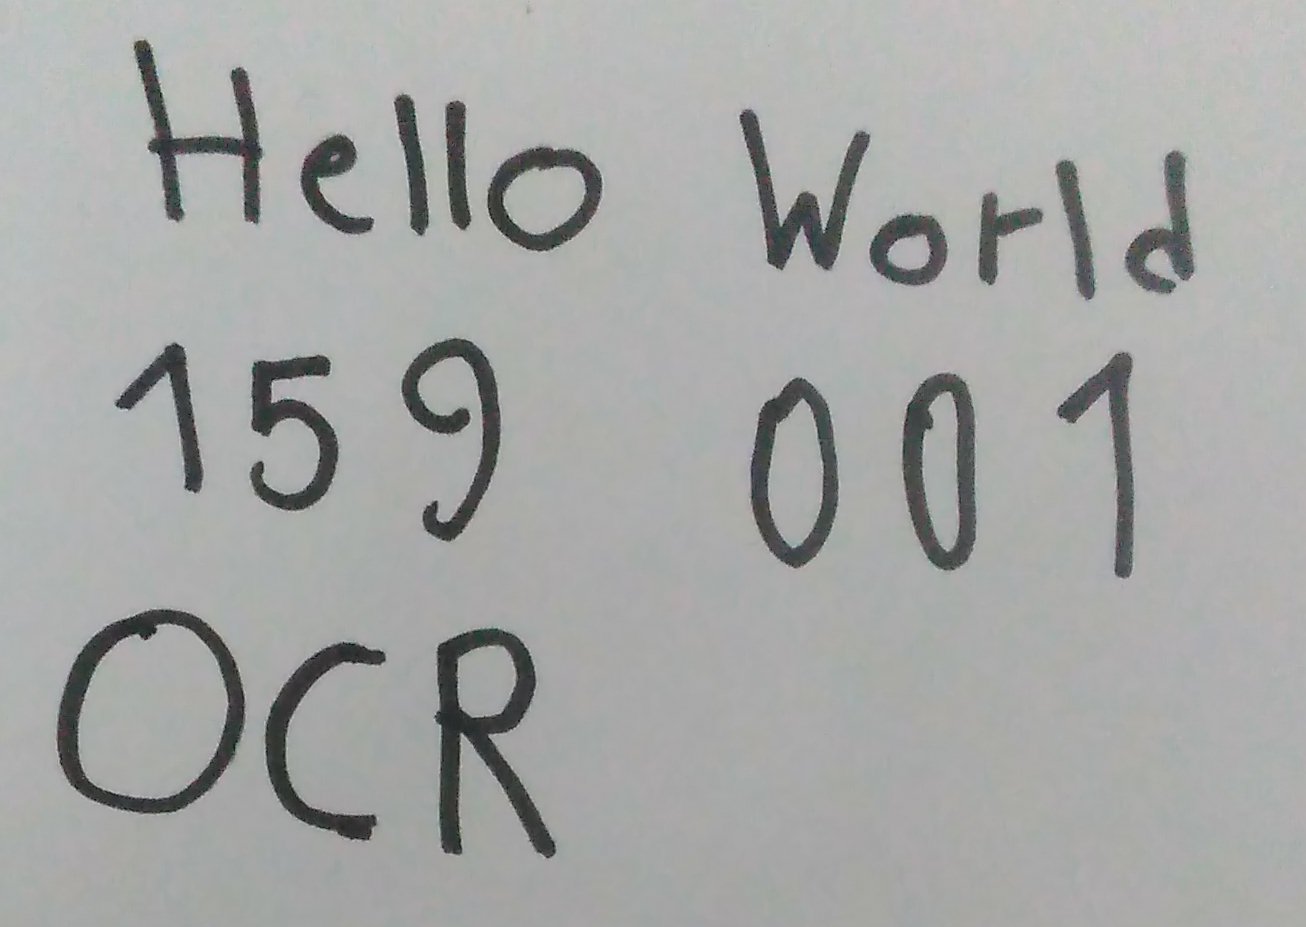 Hello World
159 001
OCR